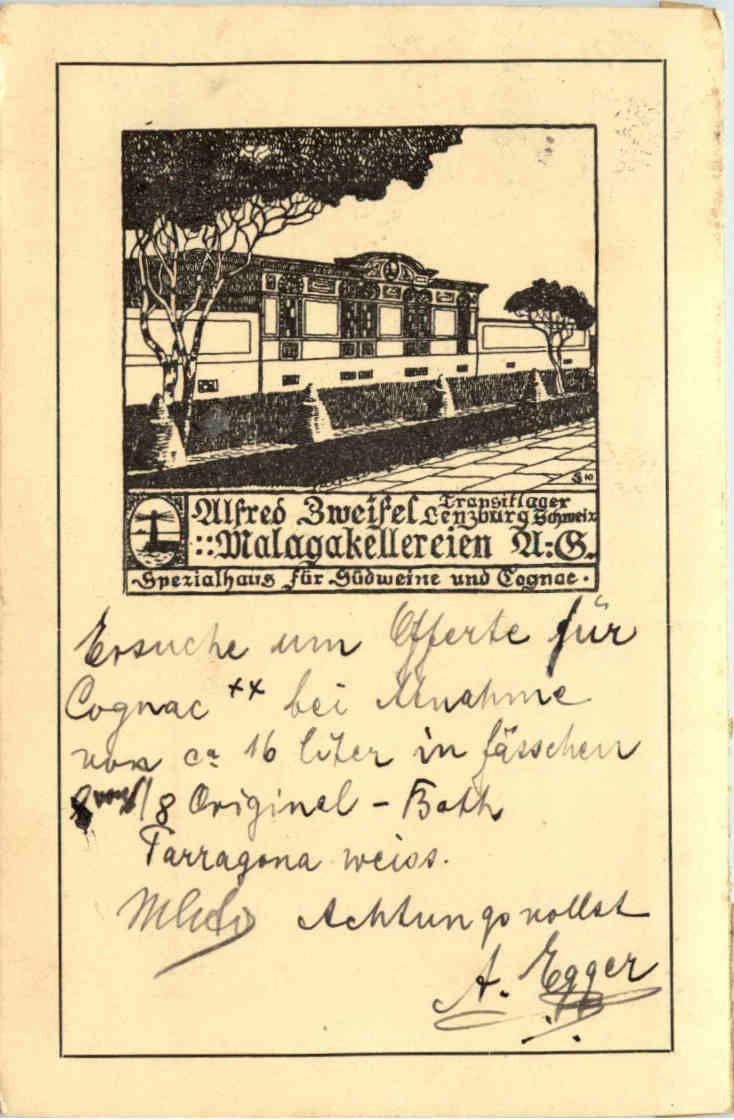 Alfred Zweifel Transitlager Lenzburg Schweiz
::Malagakellereien A:G.
Spezialhaus für Südweine und Cognac.
Ersuche um Offerte für
Cognac ++ bei Abnahme
von ca 16 liter in fässchen
von 1/8 Original - Both
Tarragona weiss.
Achtungsvollst
A. Egger